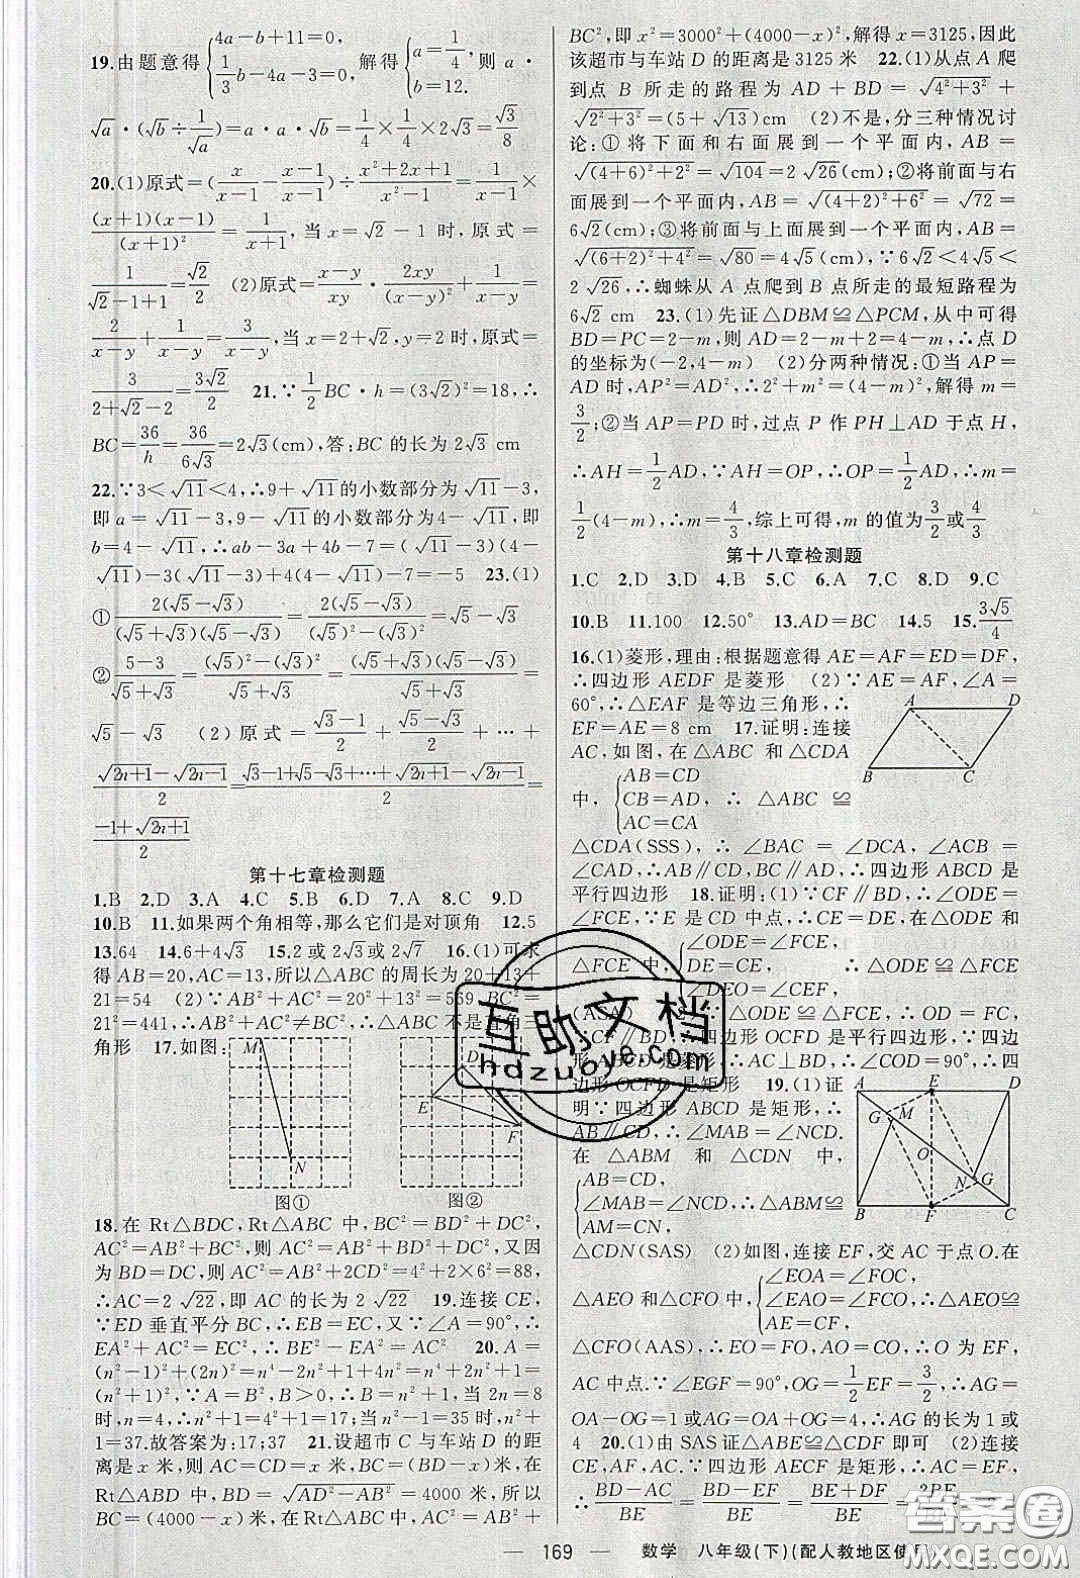 19.由题意得{4a-b+11=0, 1/3b-4a-3=0, 解得{a=1/4, b=12. 则a·
√a·(√b÷1/√a)=a·a·√b=1/4×1/4×2√3=√3/8
20.(1)原式=(x/(x-1)-1/(x-1))÷(x²+2x+1)/(x²-1)=1×
(x+1)(x-1)/(x+1)²=1/(x+1),当x=√2-1时,原式=
1/(√2-1+1)=√2/2 (2)原式=(x-y)/xy·2xy/(x-y)²+1/(x-y)=
2/(x-y)+1/(x-y)=3/(x-y),当x=2+√2,y=2时,原式=
3/(2+√2-2)=3√2/2 21.∵1/2BC·h=(3√2)²=18,∴
BC=36/h=36/6√3=2√3(cm),答:BC的长为2√3 cm
22.∵3<√11<4,∴9+√11的小数部分为√11-3,
即a=√11-3,9-√11的小数部分为4-√11,即
b=4-√11,∴ab-3a+4b-7=(√11-3)(4-
√11)-3(√11-3)+4(4-√11)-7=-5 23.(1)
①2(√5-√3)/(√5+√3)(√5-√3)=2(√5-√3)/((√5)²-(√3)²)=√5-√3
②(5-3)/(√5+√3)=((√5)²-(√3)²)/(√5+√3)=(√5+√3)(√5-√3)/(√5+√3)=
√5-√3 (2)原式=(√3-1)/2+(√5-√3)/2+…+
(√2n+1-√2n-1)/2=(√3-1+√5-√3+…+√2n+1-√2n-1)/2=
(-1+√2n+1)/2
第十七章检测题
1.B 2.D 3.A 4.C 5.B 6.D 7.A 8.C 9.D
10.B 11.如果两个角相等,那么它们是对顶角 12.5
13.64 14.6+4√3 15.2或2√3或2√7 16.(1)可求
得AB=20,AC=13,所以△ABC的周长为20+13+
21=54 (2)∵AB²+AC²=20²+13²=569,BC²=
21²=441,∴AB²+AC²≠BC²,∴△ABC不是直角三
角形 17.如图:
M
N
图①
D
E
F
图②
18.在Rt△BDC,Rt△ABC中,BC²=BD²+DC²,
AC²=AB²+BC²,则AC²=AB²+BD²+DC²,又因
为BD=DC,则AC²=AB²+2CD²=4²+2×6²=88,
∴AC=2√22,即AC的长为2√22 19.连接CE,
∵ED垂直平分BC,∴EB=EC,又∵∠A=90°,∴
EA²+AC²=EC²,∴BE²-EA²=AC² 20.A=
(n²-1)²+(2n)²=n⁴-2n²+1+4n²=n⁴+2n²+1=
(n²+1)²,∵A=B²,B>0,∴B=n²+1,当2n=8
时,n=4,∴n²+1=4²+1=17;当n²-1=35时,n²+
1=37.故答案为:17;37 21.设超市C与车站D的距
离是x米,则AC=CD=x米,BC=(BD-x)米,在
Rt△ABD中,BD=√AD²-AB²=4000米,所以
BC=(4000-x)米,在Rt△ABC中,AC²=AB²+
BC²,即x²=3000²+(4000-x)²,解得x=3125,因此
该超市与车站D的距离是3125米 22.(1)从点A爬
到点B所走的路程为AD+BD=√4²+3²+
√2²+3²=(5+√13)cm (2)不是,分三种情况讨
论:①将下面和右面展到一个平面内,AB=
√(4+6)²+2²=√104=2√26(cm);②将前面与右
面展到一个平面内,AB=√(4+2)²+6²=√72=
6√2(cm);③将前面与上面展到一个平面内,AB=
√(6+2)²+4²=√80=4√5(cm),∵6√2<4√5<
2√26,∴蜘蛛从A点爬到B点所走的最短路程为
6√2 cm 23.(1)先证△DBM≌△PCM,从中可得
BD=PC=2-m,则AD=2-m+2=4-m,∴点D
的坐标为(-2,4-m) (2)分两种情况:①当AP=
AD时,AP²=AD²,∴2²+m²=(4-m)²,解得m=
3/2;②当AP=PD时,过点P作PH⊥AD于点H,
∴AH=1/2AD,∵AH=OP,∴OP=1/2AD,∴m=
1/2(4-m),∴m=4/3,综上可得,m的值为3/2或4/3
第十八章检测题
1.C 2.D 3.D 4.B 5.C 6.A 7.C 8.D 9.C
10.B 11.100 12.50° 13.AD=BC 14.5 15.3√5/4
16.(1)菱形,理由:根据题意得AE=AF=ED=DF,
∴四边形AEDF是菱形 (2)∵AE=AF,∠A=
60°,∴△EAF是等边三角形,∴
EF=AE=8 cm 17.证明:连接
AC,如图,在△ABC和△CDA
中,{AB=CD CB=AD, AC=CA ∴△ABC≌
A
D
B
C
△CDA(SSS),∴∠BAC=∠DCA,∠ACB=
∠CAD,∴AB∥CD,BC∥AD,∴四边形ABCD是
平行四边形 18.证明:(1)∵CF∥BD,∴∠ODE
=∠FCE,∵E是CD中点,∴CE=DE,在△ODE和
△FCE中,{∠ODE=∠FCE DE=CE, ∠DEO=∠CEF, ∴△ODE≌△FCE
(ASA) (2)∵△ODE≌△FCE,∴OD=FC,
∵CF∥BD,∴四边形OCFD是平行四边形,∵四边
形ABCD是菱形,∴AC⊥BD,∴∠COD=90°,∴四
边形OCFD是矩形 19.(1)证
明∵四边形ABCD是矩形,∴
AB∥CD,∴∠MAB=∠NCD.
在△ABM和△CDN中,
{AB=CD, ∠MAB=∠NCD, AM=CN, ∴△ABM≌
A
E
D
G
M
O
N
G
B
F
C
△CDN(SAS) (2)如图,连接EF,交AC于点O.在
△AEO和△CFO中,{∠EOA=∠FOC, ∠EAO=∠FCO, AE=CF, ∴△AEO≌
△CFO(AAS),∴EO=FO,AO=CO,∴O为EF、
AC中点.∵∠EGF=90°,OG=1/2EF=3/2,∴AG=
OA-OG=1或AG=OA+OG=4,∴AG的长为1或
4 20.(1)由SAS证△ABE≌△CDF即可 (2)连接
CE,AF,AC.∵四边形AECF是菱形,∴AC=EF,
∴(BD-AC)/BE=(BD-EF)/BE=(BE+DF)/BE=2BE/BE=2
— 169 — 数学 八年级(下)(配人教地区使用)
互助文档
hdzuoye.com
答案圈
MXQE.COM